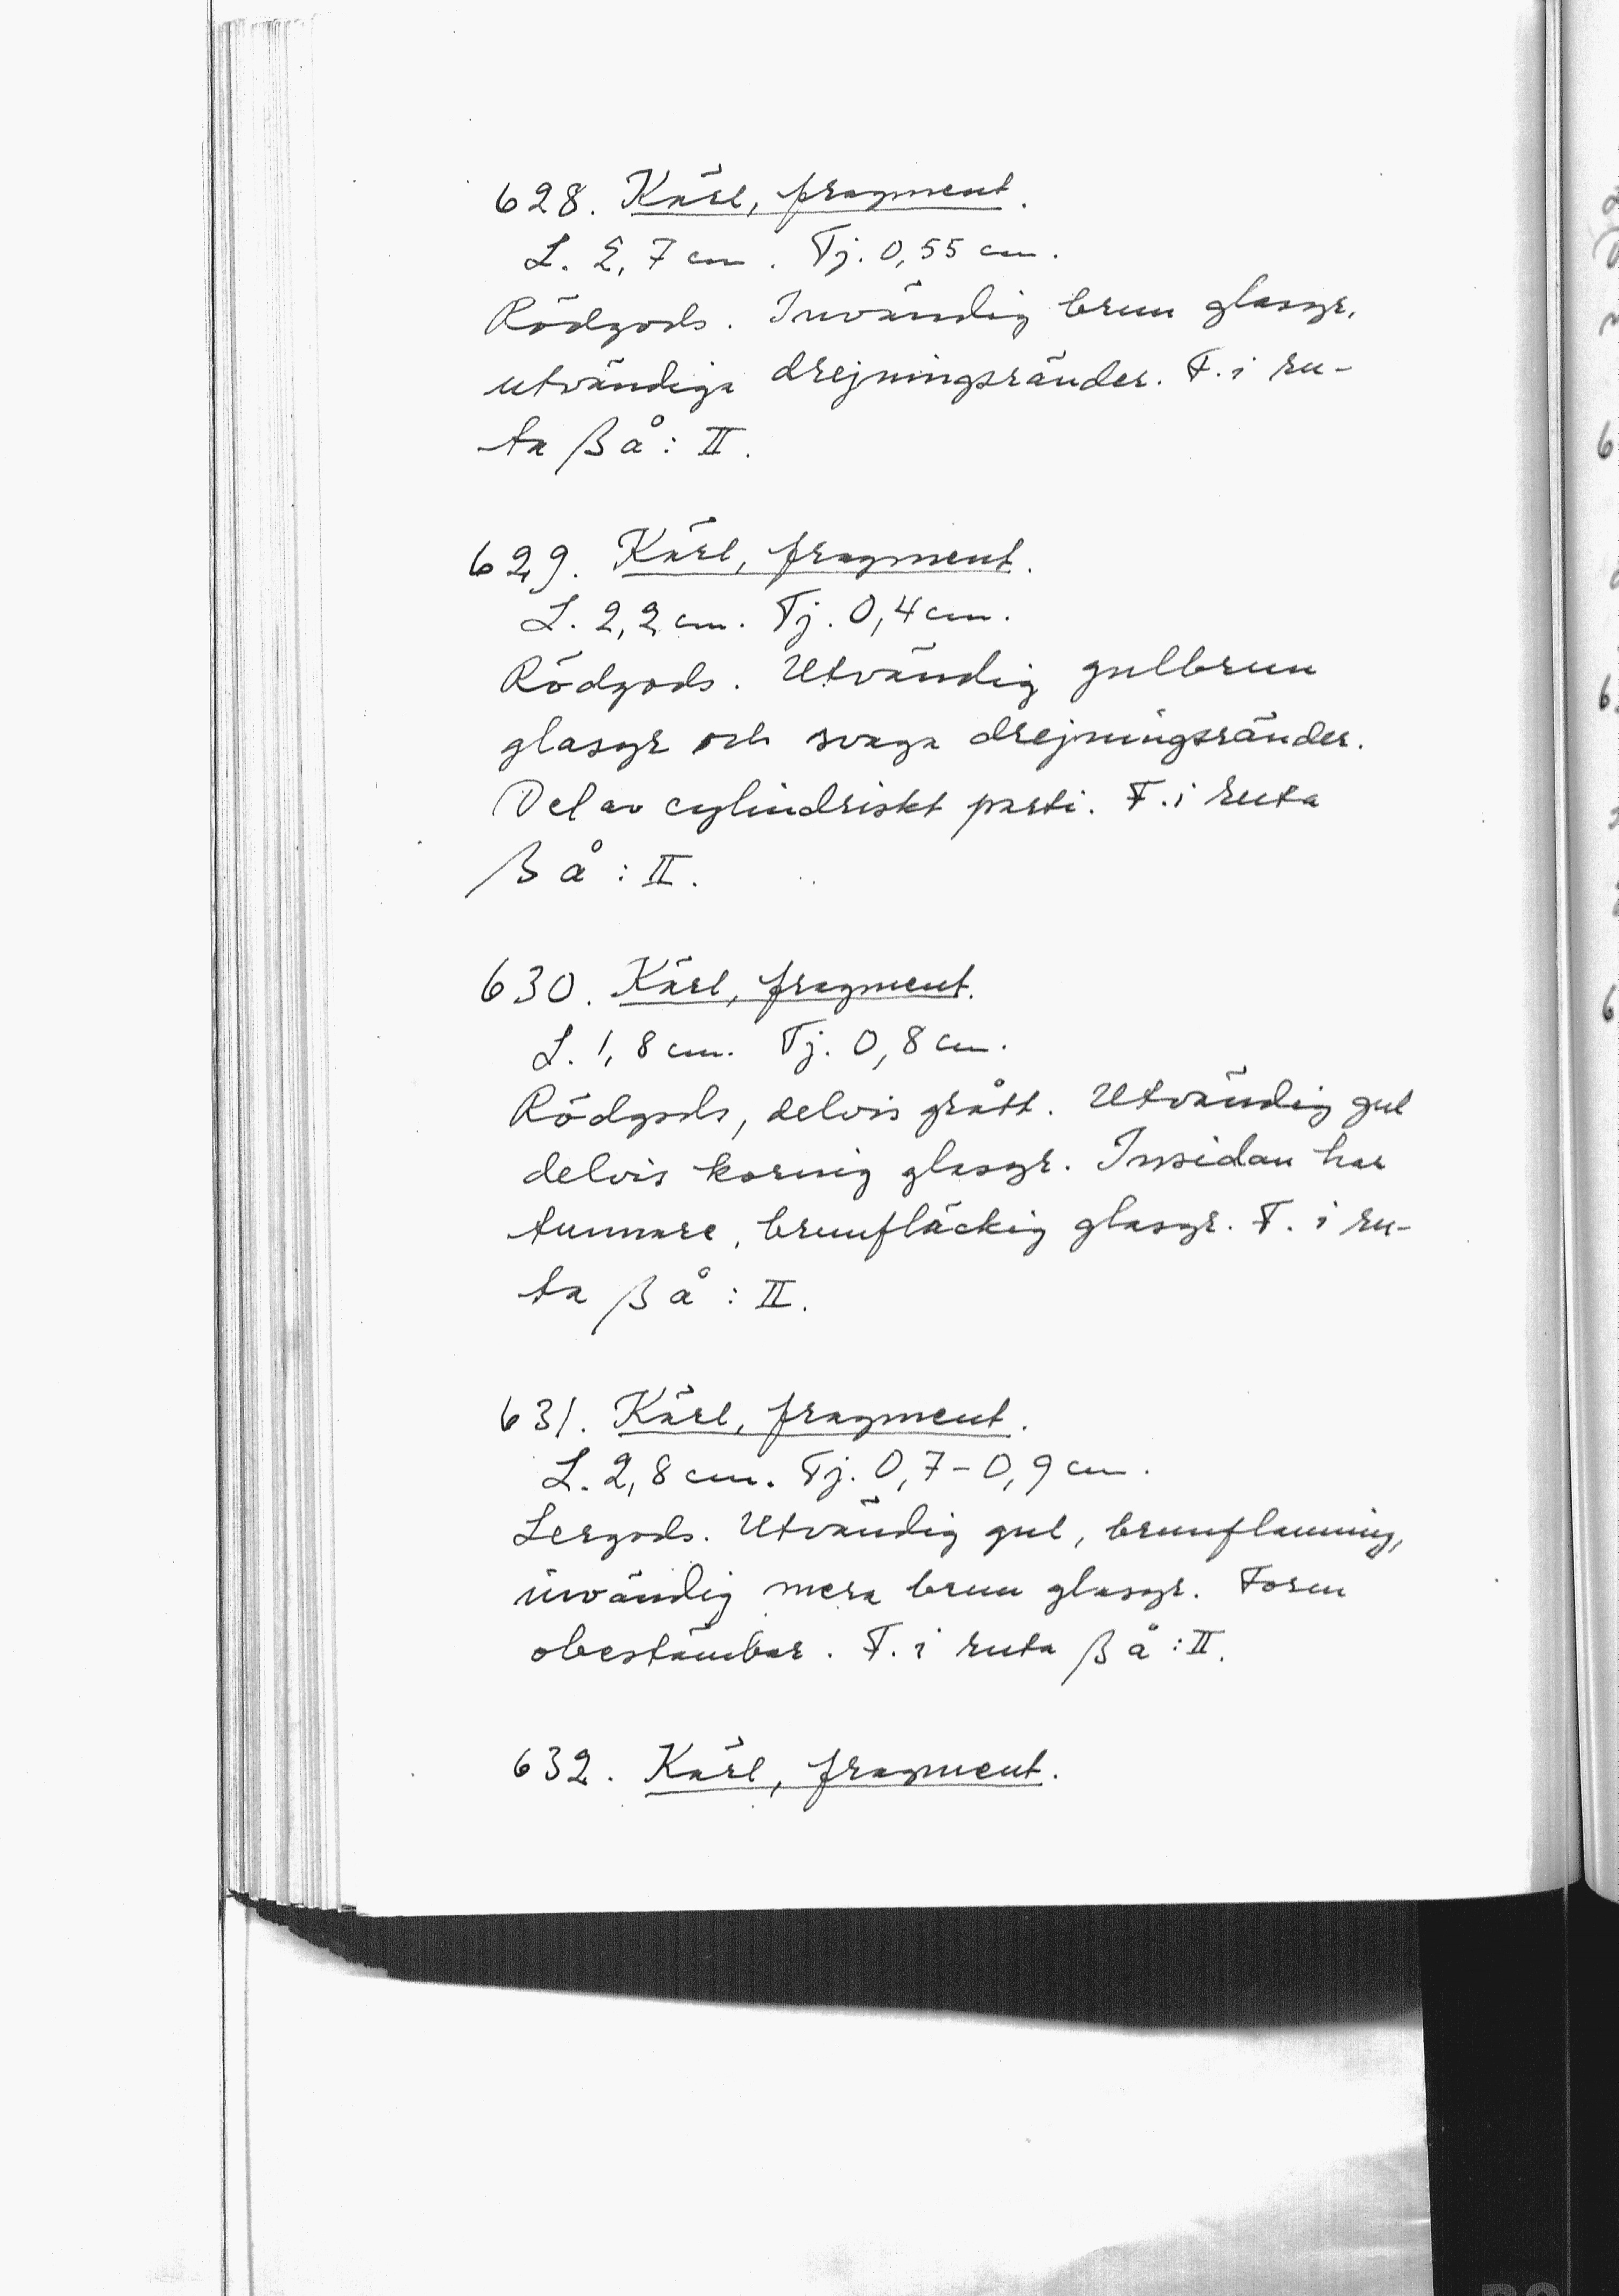 628. Kärl, fragment.
L. 2,7 cm. Tj. 0,55 cm.
Rödgods. Invändig brun glasyr,
utvändiga drejningsränder. F. i ru-
ta ßå: II.
629. Kärl, fragment.
L. 2,2 cm. Tj. 0,4 cm.
Rödgods. Utvändig gulbrun
glasyr och svaga drejningsränder.
Del av cylindriskt parti. F. i ruta
ßå: II.
630. Kärl, fragment.
L. 1,8 cm. Tj. 0,8 cm.
Rödgods, delvis grått. Utvändig gul
delvis kornig glasyr. Insidan har
tunnare, brunfläckig glasyr. F. i ru-
ta ßå: II.
631. Kärl, fragment.
L. 2,8 cm. Tj. 0,7-0,9 cm.
Lergods. Utvändig gul, brunflammig,
invändig mera brun glasyr. Form
obestämbar. F. i ruta ßå: II.
632. Kärl, fragment.